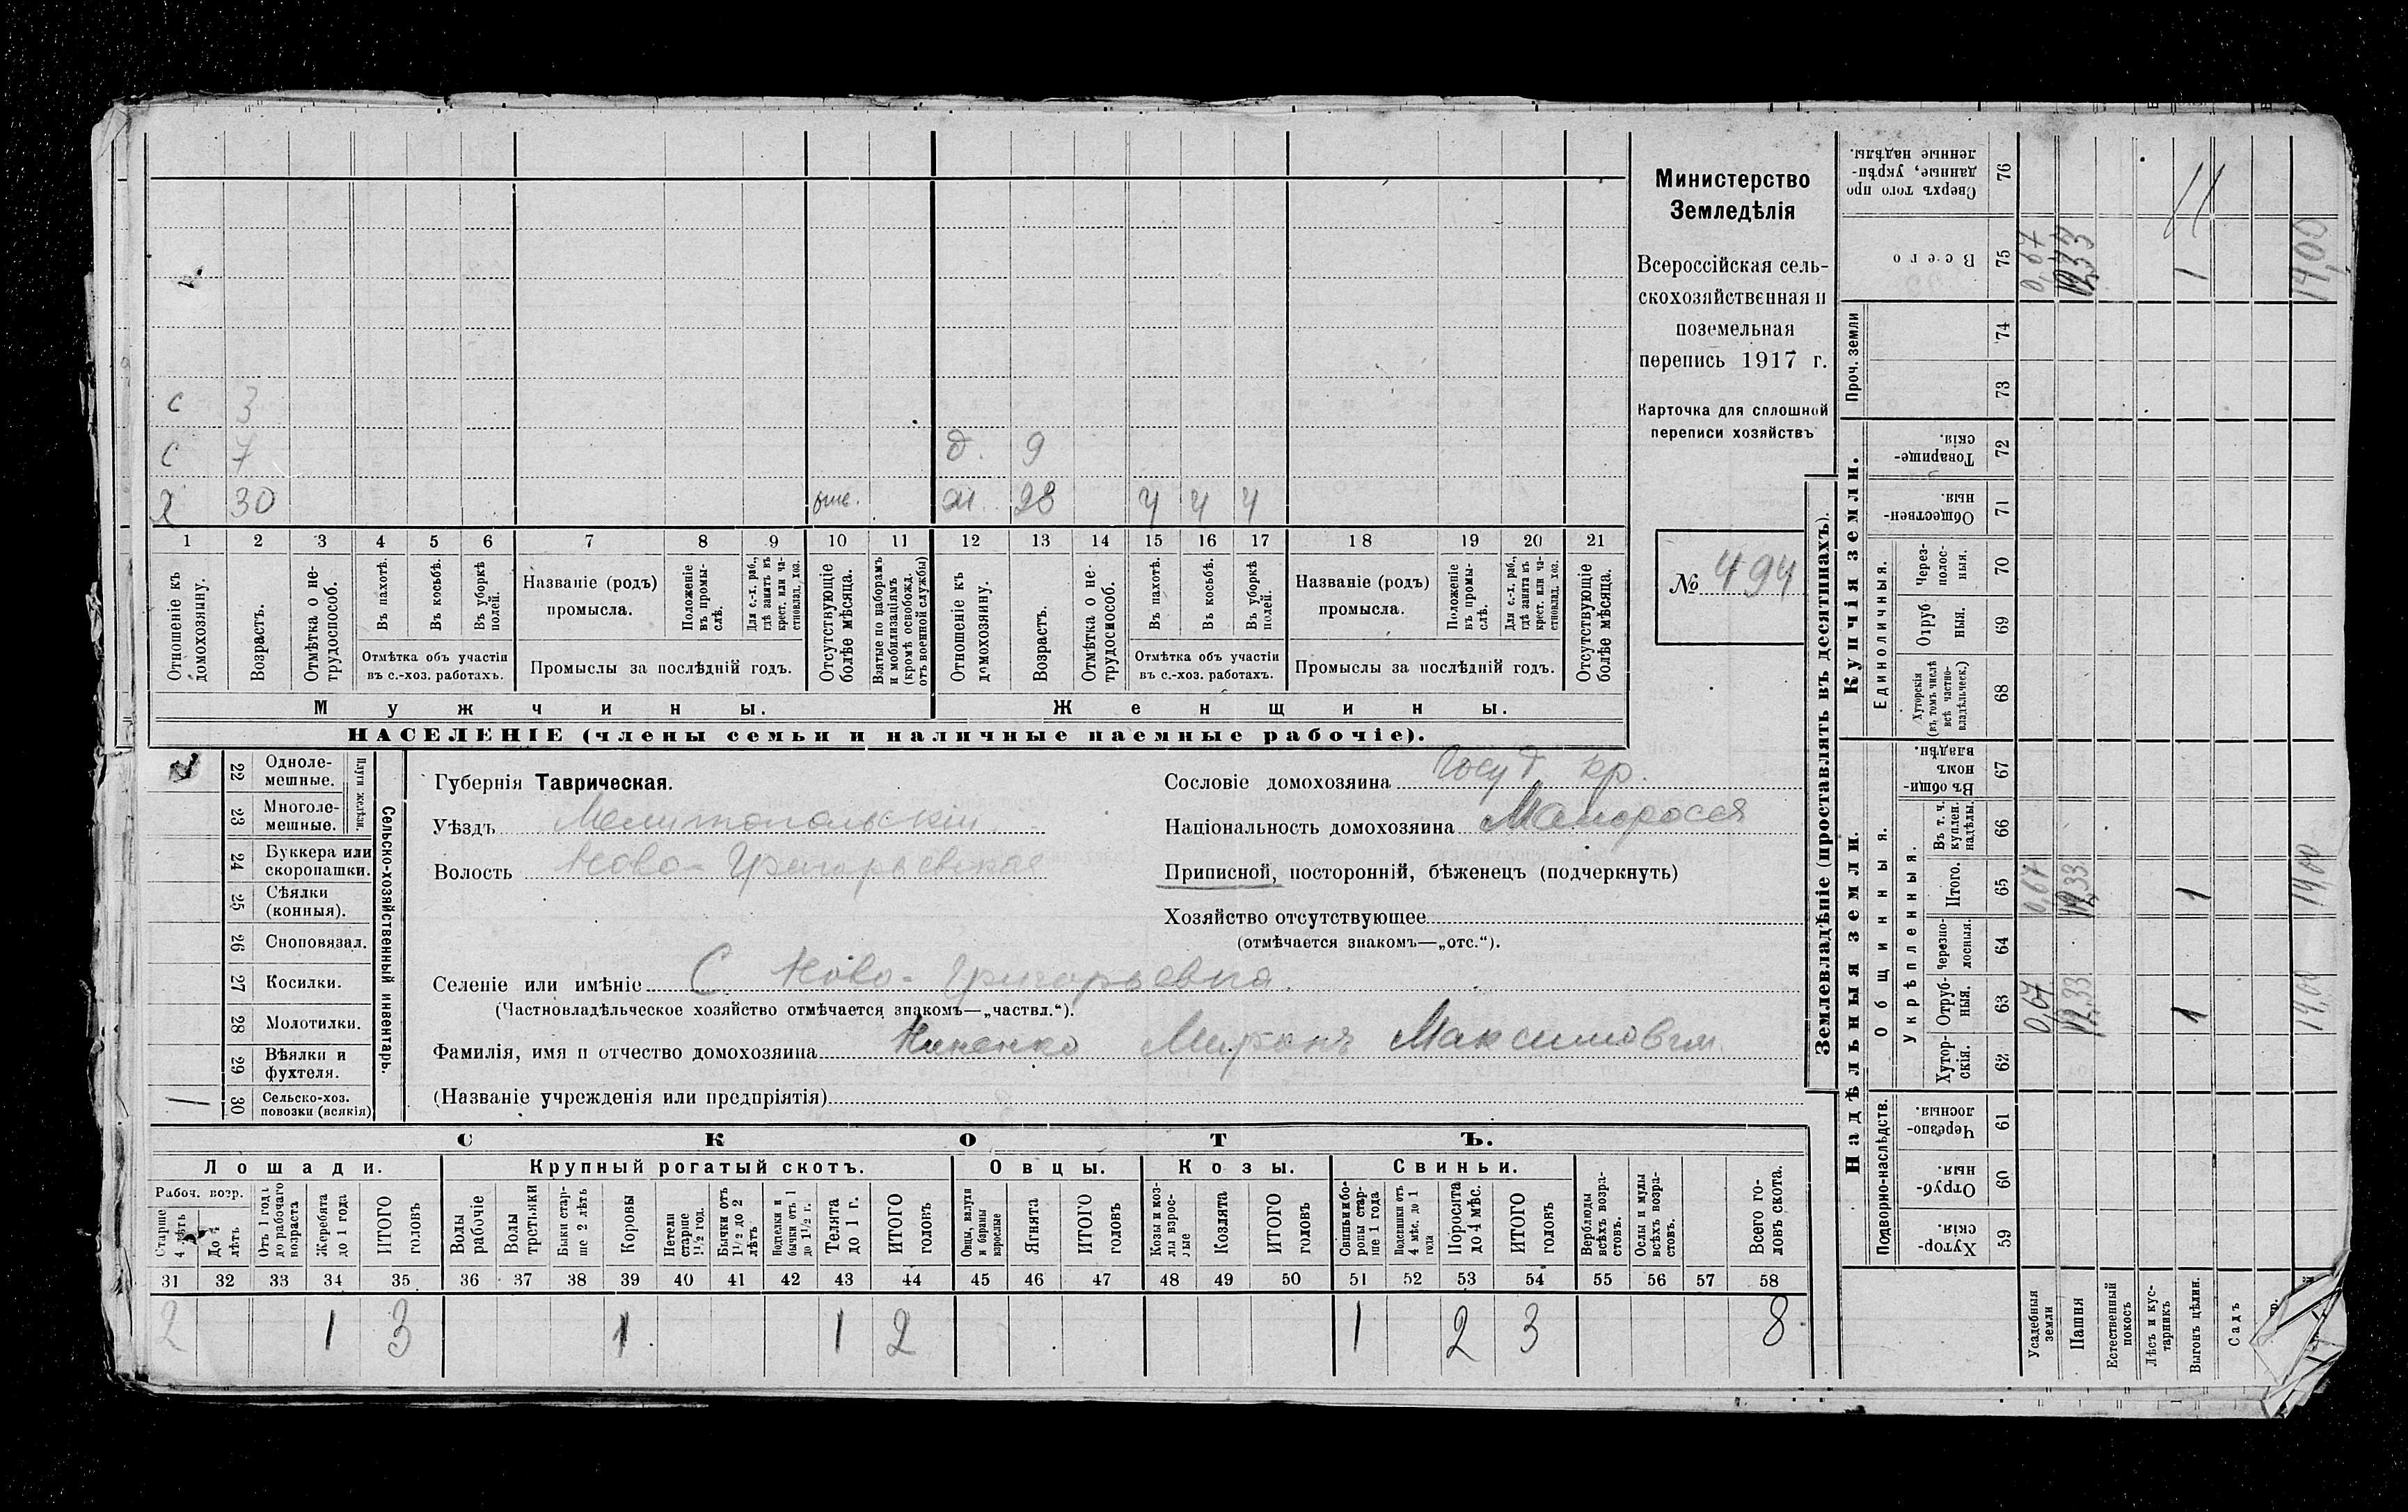 с 3
с 7 д. 9
х 30 отс. ж. 28 ч ч ч
1 2 3 4 5 6 7 8 9 10 11 12 13 14 15 16 17 18 19 20 21
Отношеніе къ домохозяину.
Возрастъ.
Отмѣтка о не-
трудоспособ.
Въ пахотѣ.
Въ косьбѣ.
Въ уборкѣ
полей.
Отмѣтка объ участіи
въ с.-хоз. работахъ.
Названіе (родъ)
промысла.
Положеніе
въ промы-
слѣ.
Для с.-х. раб.,
гдѣ занятъ въ
крест. или ча-
стновлад. хоз.
Промыслы за послѣдній годъ.
Отсутствующіе
болѣе мѣсяца.
Взятые по наборамъ
и мобилизаціямъ
(кромѣ освобожд.
отъ военной службы)
Отношеніе къ
домохозяину.
Возрастъ.
Отмѣтка о не-
трудоспособ.
Въ пахотѣ.
Въ косьбѣ.
Въ уборкѣ
полей.
Отмѣтка объ участіи
въ с.-хоз. работахъ.
Названіе (родъ)
промысла.
Положеніе
въ промы-
слѣ.
Для с.-х. раб.,
гдѣ занята въ
крест. или ча-
стновлад. хоз.
Промыслы за послѣдній годъ.
Отсутствующіе
болѣе мѣсяца.
Мужчины.
Женщины.
НАСЕЛЕНІЕ (члены семьи и наличные наемные рабочіе).
Министерство
Земледѣлія
Всероссійская сель-
скохозяйственная и
поземельная
перепись 1917 г.
Карточка для сплошной
переписи хозяйствъ
№ 494
22 Одноле-
мешные.
23 Многоле-
мешные.
Плуги желѣзн.
24 Буккера или
скоропашки.
25 Сѣялки
(конныя).
26 Сноповязал.
27 Косилки.
28 Молотилки.
29 Вѣялки и
фухтеля.
1 30 Сельско-хоз.
повозки (всякія)
Сельско-хозяйственный инвентарь.
Губернія Таврическая.
Уѣздъ Мелитопольскій
Волость Ново-Григорьевская
Селеніе или имѣніе С Ново-Григорьевка
(Частновладѣльческое хозяйство отмѣчается знакомъ—„частвл.“).
Фамилія, имя и отчество домохозяина Миронъ Максимовъ
(Названіе учрежденія или предпріятія)
Сословіе домохозяина Госуд. кр.
Національность домохозяина Малороссъ
Приписной, посторонній, бѣженецъ (подчеркнуть)
Хозяйство отсутствующее
(отмѣчается знакомъ—„отс.“).
СКОТЪ.
Лошади.
Крупный рогатый скотъ.
Овцы.
Козы.
Свиньи.
Рабоч. возр.
Старше
4 лѣтъ
До 4
лѣтъ
Отъ 1 года
до рабочаго
возраста
Жеребята
до 1 года
ИТОГО
головъ
Волы
рабочіе
Волы
третьяки
Быки стар-
ше 2 лѣтъ
Коровы
Нетели
старше
1½ год.
Бычки отъ
1½ до 2
лѣтъ
Подтелки и
бычки отъ 1
до 1½ г.
Телята
до 1 г.
ИТОГО
головъ
Овцы, валухи
и бараны
взрослые
Ягнята
ИТОГО
головъ
Козы и коз-
лы взрос-
лые
Козлята
ИТОГО
головъ
Свиньи и бо-
ровы стар-
ше 1 года
Подсвинки отъ
4 мѣс. до 1
года
Поросята
до 4 мѣс.
ИТОГО
головъ
Верблюды
всѣхъ возра-
стовъ.
Ослы и мулы
всѣхъ возра-
стовъ.
Всего го-
ловъ скота.
31 32 33 34 35 36 37 38 39 40 41 42 43 44 45 46 47 48 49 50 51 52 53 54 55 56 57 58
2 1 3 1 1 2 1 2 3 8
Землевладѣніе (проставлять въ десятинахъ).
Надѣльныя земли.
Купчія земли.
Проч. земли
Подворно-наслѣдств.
Общинныя.
Укрѣпленныя.
Единоличныя.
Хутор-
скія. 59
Отруб-
ныя. 60
Черезпо-
лосныя. 61
Хутор-
скія. 62
Отруб-
ныя. 63
Черезпо-
лосныя. 64
Итого. 65
Въ т. ч.
куплен.
надѣлы. 66
Въ общи-
номъ
владѣн. 67
Хуторскія
(въ томъ числѣ
всѣ частно-
владѣльческ.) 68
Отруб
ныя. 69
Через-
полос-
ныя. 70
Обществен-
ныя. 71
Товарище-
скія. 72
73
74
Всего 75
Сверхъ того про
данные, укрѣп-
ленные надѣлы. 76
Усадебныя
земли
0,67 0,67 0,67
Пашня
12,33 12,33 12,33
Естественный
покосъ
Лѣсъ и кус-
тарникъ
Выгонъ цѣлин.
1 1 1
Садъ
14,00 14,00 14,00